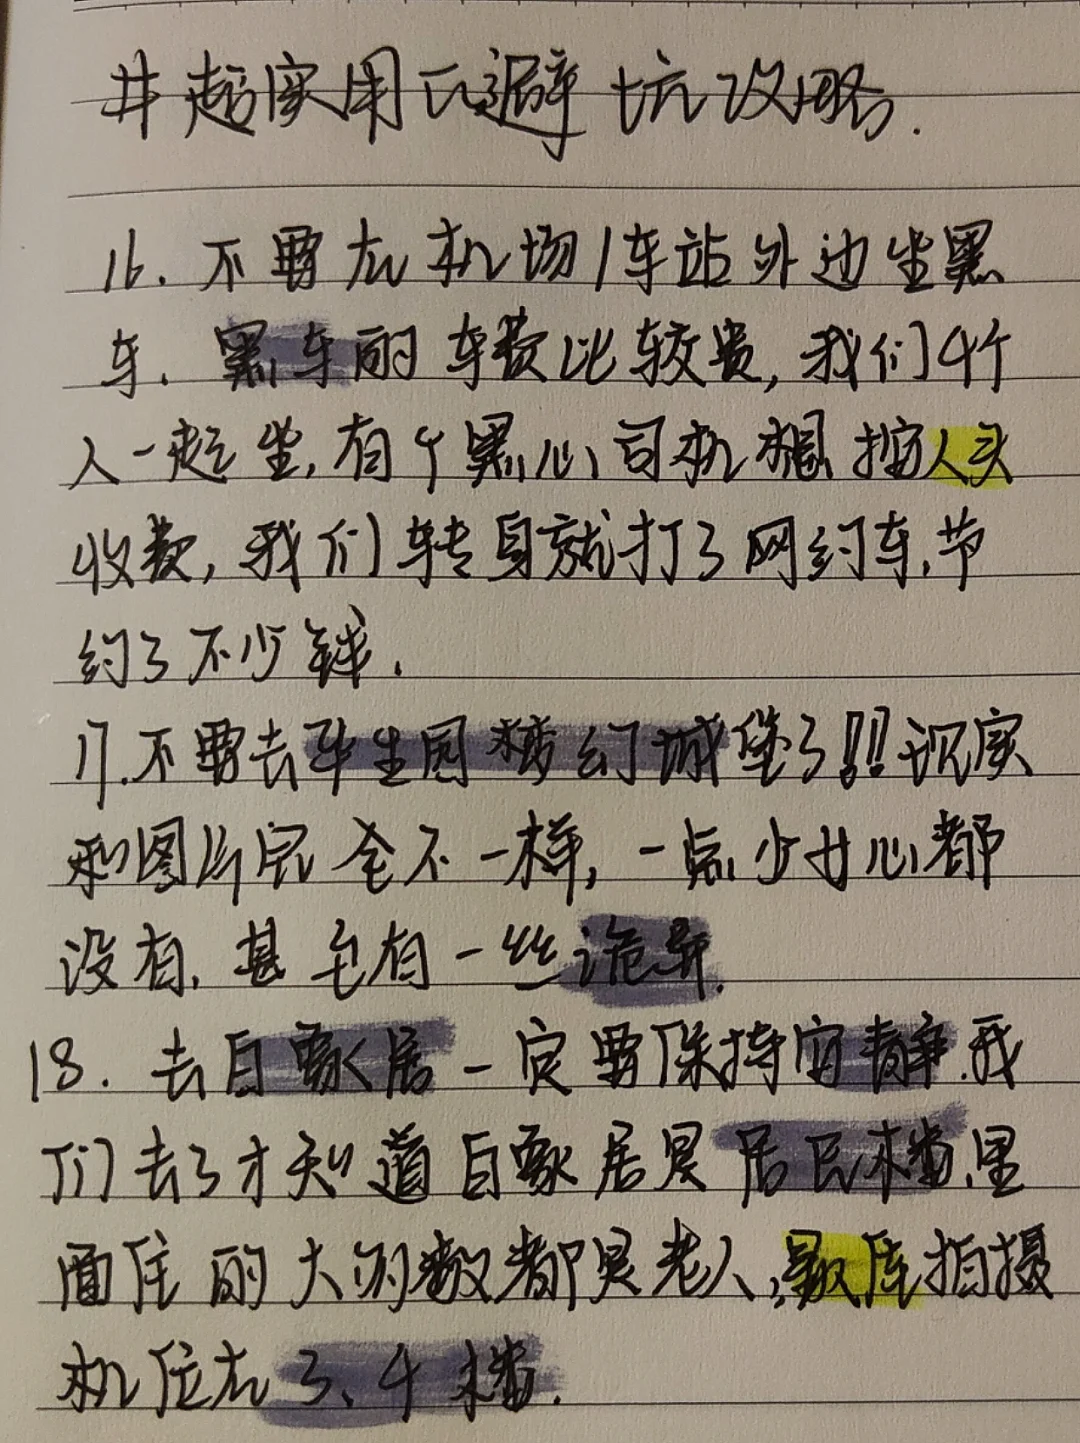 #超实用de避坑攻略.
16.不要在机场/车站外边坐黑
车.黑车的车费比较贵,我们4个
人一起坐,有个黑心司机想按人头
收费,我们转身就打了网约车,节
约了不少钱.
17.不要去华生园梦幻城堡了!!!现实
和图片完全不一样,一点少女心都
没有.甚至有一丝诡异.
18.去白象居一定要保持安静.我
们去了才知道白象居是居民楼,里
面住的大多数都是老人,最佳拍摄
机位在3、4楼.